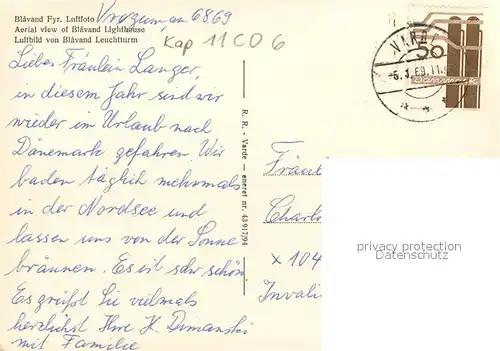 Blåvand Fyr. Luftfoto
Aerial view of Blåvand Lighthouse
Luftbild von Blåvand Leuchtturm
6869
Kap 11 C 0 6
Liebes Fräulein Langer,
in diesem Jahr sind wir
wieder im Urlaub nach
Dänemark gefahren. Wir
baden täglich mehrmals
in der Nordsee und
lassen uns von der Sonne
bräunen. Es ist sehr schön
Es grüßt Sie vielmals
herzlichst Ihre K. Dimanski
mit Familie
R. R. - Varde - eneret nr. 43 917/94
VARD
50
Danmark
Fräul
Charlo
x 104
Invali
privacy protection
Datenschutz